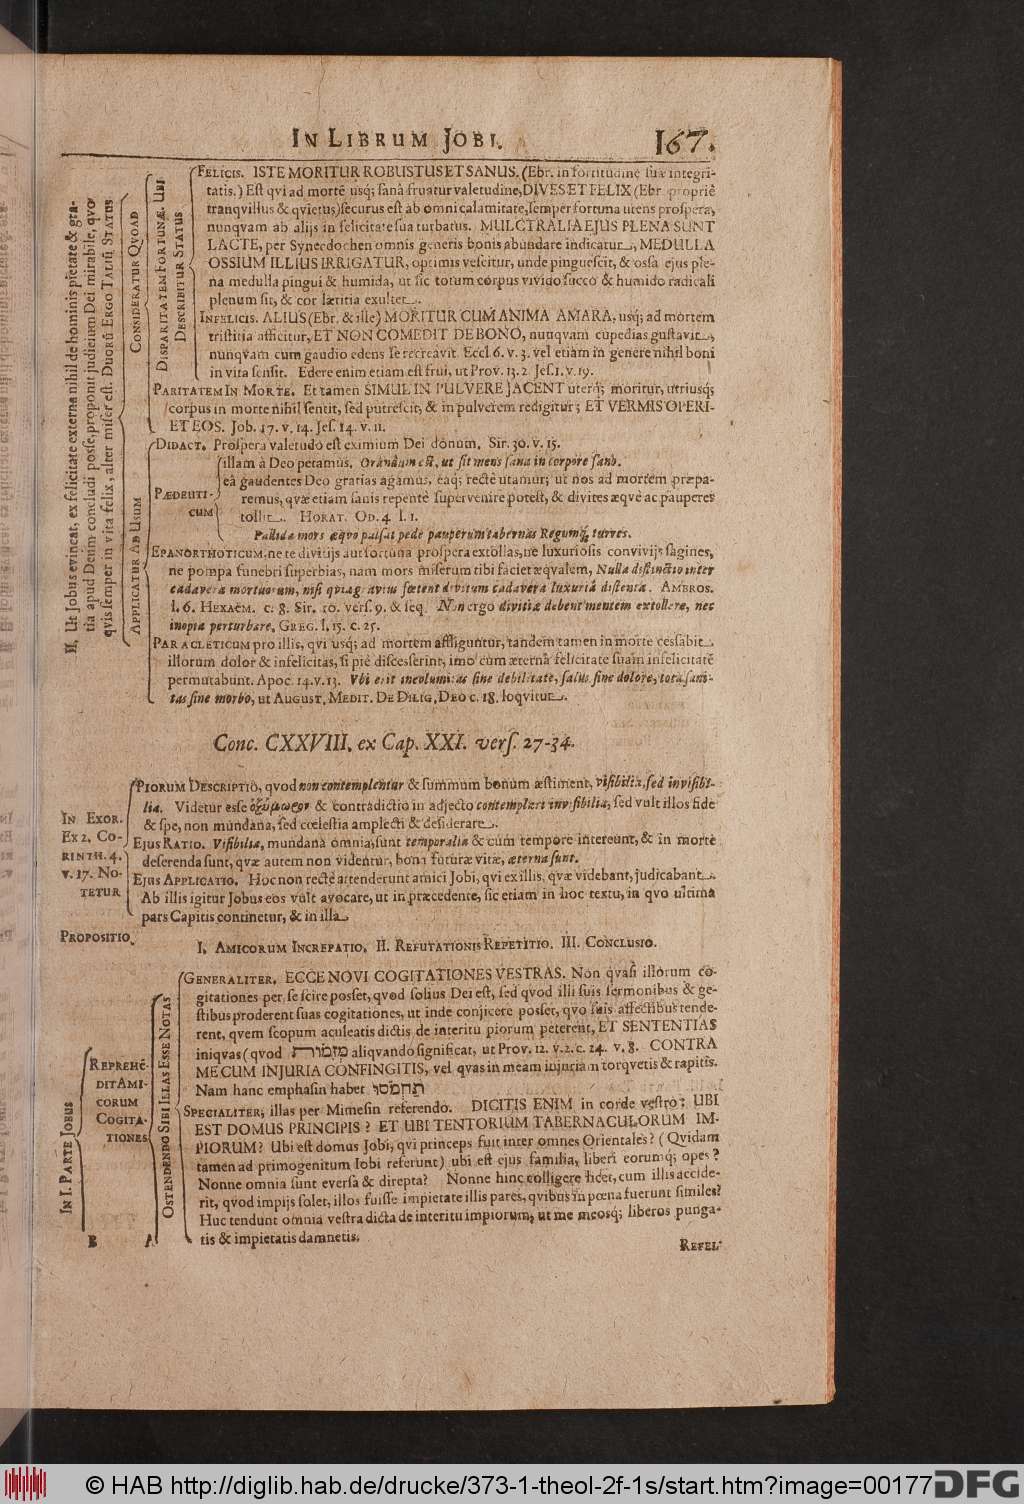 IN LIBRUM JOBI. 167.
II. Ut Jobus evincat, ex felicitate externa nihil de hominis pietate & gra-
tia apud Deum concludi posse, proponit judicium Dei mirabile, qvo
qvis semper in vita felix, alter miser est. DUORŨ ERGO TALIŨ STATUS
CONSIDERATUR QVOAD
DISPARITATEM FORTUNÆ. UBI
DESCRIBITUR STATUS
FELICIS. ISTE MORITUR ROBUSTUS ET SANUS. (Ebr. in fortitudine suæ integri-
tatis.) Est qvi ad mortē usq; sanâ fruatur valetudine, DIVES ET FELIX (Ebr. propriè
tranqvillus & qvietus) securus est ab omni calamitate, semper fortuna utens prospera,
nunqvam ab alijs in felicitate sua turbatus. MULCTRALIA EJUS PLENA SUNT
LACTE, per Synecdochen omnis generis bonis abundare indicatur, MEDULLA
OSSIUM ILLIUS IRRIGATUR, optimis vescitur, unde pinguescit, & ossa ejus ple-
na medulla pingui & humida, ut sic totum corpus vivido succo & humido radicali
plenum sit, & cor lætitia exultet.
INFELICIS. ALIUS (Ebr. & iste) MORITUR CUM ANIMA AMARA, usq; ad mortem
tristitia afficitur, ET NON COMEDIT DE BONO, nunqvam cupedias gustavit,
nunqvam cum gaudio edens se recreavit. Eccl. 6. v. 3. vel etiam in genere nihil boni
in vita sensit. Edere enim etiam est frui, ut Prov. 13. 2. Jes. 1. v. 19.
PARITATEM IN MORTE. Et tamen SIMUL IN PULVERE JACENT uterq; moritur, utriusq;
corpus in morte nihil sentit, sed putrescit, & in pulverem redigitur; ET VERMIS OPERI-
ET EOS. Job. 17. v. 14. Jes. 14. v. 11.
APPLICATUR AD USUM
DIDACT. Prospera valetudo est eximium Dei donum. Sir. 30. v. 15.
PÆDEUTI-
CUM
illam à Deo petamus. Orandum est, ut sit mens sana in corpore sano.
eâ gaudentes Deo gratias agamus, eaq; rectè utamur; ut nos ad mortem præpa-
remus, qvæ etiam sanis repentè supervenire potest, & divites æqvè ac pauperes
tollit. HORAT. OD. 4. l. 1.
Pallida mors æqvo pulsat pede pauperum tabernas Regumq; turres.
EPANORTHOTICUM. ne te divitijs aut fortuna prospera extollas, ne luxuriosis convivijs sagines,
ne pompa funebri superbias, nam mors miserum tibi faciet æqvalem, Nulla distinctio inter
cadavera mortuorum, nisi qvia gravius fœtent divitum cadavera luxuriâ distenta. AMBROS.
l. 6. HEXAEM. c. 8. Sir. 10. vers. 9. & seq. Non ergo divitiæ debent mentem extollere, nec
inopia perturbare, GREG. l. 15. c. 25.
PARACLETICUM pro illis, qvi usq; ad mortem affliguntur, tandem tamen in morte cessabit
illorum dolor & infelicitas, si piè discesserint, imo cum æternâ felicitate suam infelicitatē
permutabunt. Apoc. 14. v. 13. Vbi erit incolumitas sine debilitate, salus sine dolore, tota sani-
tas sine morbo, ut AUGUST. MEDIT. DE DILIG. DEO c. 18. loqvitur.
Conc. CXXVIII. ex Cap. XXI. vers. 27-34.
IN EXOR.
EX 2. CO-
RINTH. 4.
v. 17. NO-
TETUR
PIORUM DESCRIPTIO, qvod non contemplentur & summum bonum æstiment, visibilia, sed invisibi-
lia. Videtur esse ὀξύμωρον & contradictio in adjecto contemplari invisibilia, sed vult illos fide
& spe, non mundana, sed cœlestia amplecti & desiderare.
EJUS RATIO. Visibilia, mundana omnia, sunt temporalia & cum tempore intereunt, & in morte
deserenda sunt, qvæ autem non videntur, bona futuræ vitæ, æterna sunt.
EJUS APPLICATIO. Hoc non rectè attenderunt amici Jobi, qvi ex illis, qvæ videbant, judicabant.
Ab illis igitur Jobus eos vult avocare, ut in præcedente, sic etiam in hoc textu, in qvo ultima
pars Capitis continetur, & in illa
PROPOSITIO.
I. AMICORUM INCREPATIO. II. REFUTATIONIS REPETITIO. III. CONCLUSIO.
IN I. PARTE JOBUS
REPREHĒ-
DIT AMI-
CORUM
COGITA-
TIONES
OSTENDENDO SIBI ILLAS ESSE NOTAS
GENERALITER. ECCE NOVI COGITATIONES VESTRAS. Non qvasi illorum co-
gitationes per se scire posset, qvod solius Dei est, sed qvod illi suis sermonibus & ge-
stibus proderent suas cogitationes, ut inde conjicere posset, qvo suis affectibus tende-
rent, qvem scopum aculeatis dictis de interitu piorum peterent, ET SENTENTIAS
iniqvas (qvod מזמות aliqvando significat, ut Prov. 12. v. 2. c. 24. v. 8. CONTRA
ME CUM INJURIA CONFINGITIS, vel qvas in meam injuriam torqvetis & rapitis.
Nam hanc emphasin habet תחמסו
SPECIALITER, illas per Mimesin referendo. DICITIS ENIM in corde vestro: UBI
EST DOMUS PRINCIPIS? ET UBI TENTORIUM TABERNACULORUM IM-
PIORUM? Ubi est domus Jobi, qvi princeps fuit inter omnes Orientales? (Qvidam
tamen ad primogenitum Iobi referunt) ubi est ejus familia, liberi eorumq; opes?
Nonne omnia sunt eversa & direpta? Nonne hinc colligere licet, cum illis accide-
rit, qvod impijs solet, illos fuisse impietate illis pares, qvibus in pœna fuerunt similes?
Huc tendunt omnia vestra dicta de interitu impiorum, ut me meosq; liberos punga-
tis & impietatis damnetis.
B A
REFEL-
© HAB http://diglib.hab.de/drucke/373-1-theol-2f-1s/start.htm?image=00177
DFG